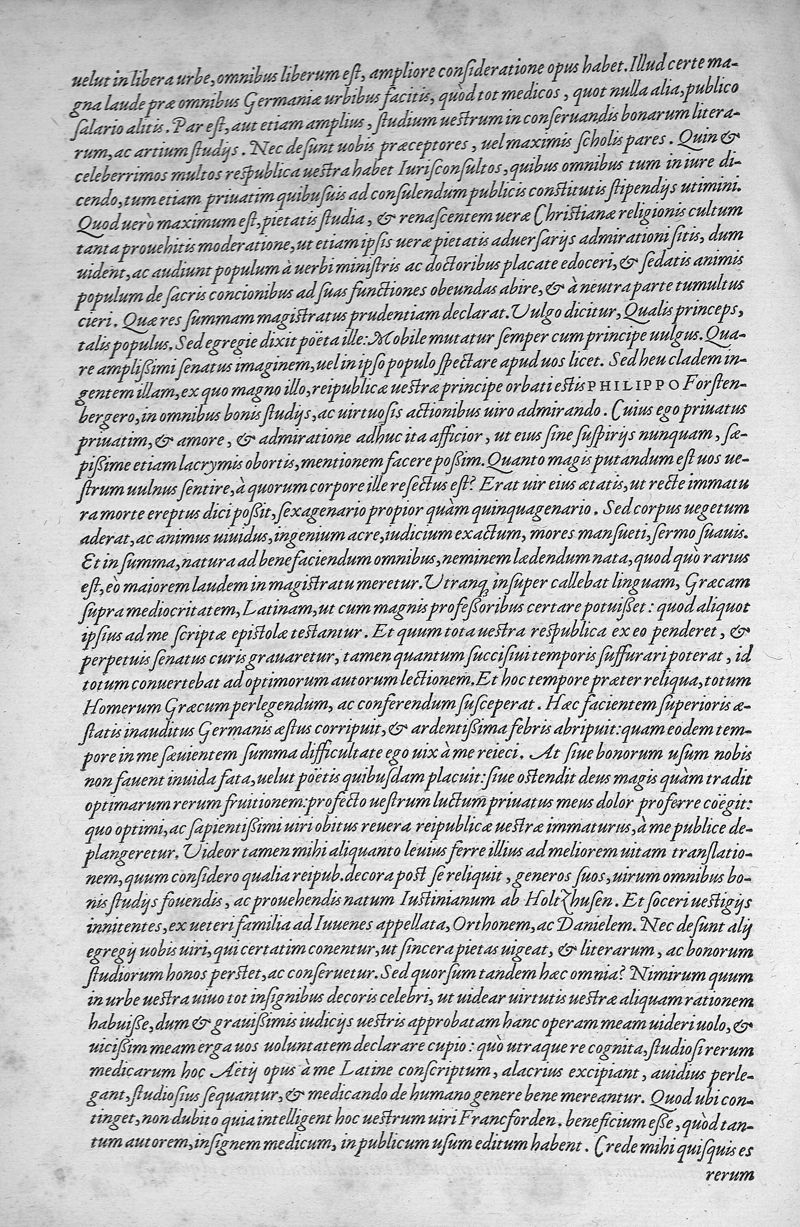 uelut in libera urbe, omnibus liberum est, ampliore consideratione opus habet. Illud certe ma-
gna laude præ omnibus Germaniæ urbibus facitis, quòd tot medicos, quot nulla alia, publico
salario alitis. Par est, aut etiam amplius, studium uestrum in conseruandis bonarum litera-
rum, ac artium studijs. Nec desunt uobis præceptores, uel maximis scholis pares. Quin &
celeberrimos multos respublica uestra habet Iurisconsultos, quibus omnibus tum in iure di-
cendo, tum etiam priuatim quibusuis ad consulendum publicis constitutis stipendijs utimini.
Quod uerò maximum est, pietatis studia, & renascentem ueræ Christianæ religionis cultum
tanta prouehitis moderatione, ut etiam ipsis ueræ pietatis aduersarijs admirationi sitis, dum
uident, ac audiunt populum à uerbi ministris ac doctoribus placate edoceri, & sedatis animis
populum de sacris concionibus ad suas functiones obeundas abire, & à neutra parte tumultus
cieri. Quæ res summam magistratus prudentiam declarat. Vulgo dicitur, Qualis princeps,
talis populus. Sed egregie dixit poëta ille: Mobile mutatur semper cum principe uulgus. Qua-
re amplißimi senatus imaginem, uel in ipso populo spectare apud uos licet. Sed heu cladem in-
gentem illam, ex quo magno illo, reipublicæ uestræ principe orbati estis PHILIPPO Forsten-
bergero, in omnibus bonis studijs, ac uirtuosis actionibus uiro admirando. Cuius ego priuatus
priuatim, & amore, & admiratione adhuc ita afficior, ut eius sine suspirijs nunquam, sæ-
pißime etiam lacrymis obortis, mentionem facere poßim. Quanto magis putandum est uos ue-
strum uulnus sentire, à quorum corpore ille resectus est? Erat uir eius ætatis, ut recte immatu
ra morte ereptus dici poßit, sexagenario propior quàm quinquagenario. Sed corpus uegetum
aderat, ac animus uiuidus, ingenium acre, iudicium exactum, mores mansueti, sermo suauis.
Et in summa, natura ad benefaciendum omnibus, neminem lædendum nata, quod quò rarius
est, eò maiorem laudem in magistratu meretur. Vtranq; insuper callebat linguam, Græcam
supra mediocritatem, Latinam, ut cum magnis professoribus certare potuißet: quod aliquot
ipsius ad me scriptæ epistolæ testantur. Et quum tota uestra respublica ex eo penderet, &
perpetuis senatus curis grauaretur, tamen quantum succisiui temporis suffurari poterat, id
totum conuertebat ad optimorum autorum lectionem. Et hoc tempore præter reliqua, totum
Homerum Græcum perlegendum, ac conferendum susceperat. Hæc facientem superioris æ-
statis inauditus Germanis æstus corripuit, & ardentißima febris abripuit: quam eodem tem-
pore in me sæuientem summa difficultate ego uix à me reieci. At siue bonorum usum nobis
non fauent inuida fata, uelut poëtis quibusdam placuit: siue ostendit deus magis quàm tradit
optimarum rerum fruitionem: profecto uestrum luctum priuatus meus dolor proferre coëgit:
quo optimi, ac sapientißimi uiri obitus reuera reipublicæ uestræ immaturus, à me publice de-
plangeretur. Videor tamen mihi aliquanto leuius ferre illius ad meliorem uitam translatio-
nem, quum considero qualia reipub. decora post se reliquit, generos suos, uirum omnibus bo-
nis studijs fouendis, ac prouehendis natum Iustinianum ab Holtzhusen. Et soceri uestigijs
innitentes, ex ueteri familia ad Iuuenes appellata, Orthonem, ac Danielem. Nec desunt alij
egregij uobis uiri, qui certatim conentur, ut sincera pietas uigeat, & literarum, ac bonorum
studiorum honos perstet, ac conseruetur. Sed quorsum tandem hæc omnia? Nimirum quum
in urbe uestra uiuo tot insignibus decoris celebri, ut uidear uirtutis uestræ aliquam rationem
habuiße, dum & grauißimis iudicijs uestris approbatam hanc operam meam uideri uolo, &
uicißim meam erga uos uoluntatem declarare cupio: quò utraque re cognita, studiosi rerum
medicarum hoc Aetij opus à me Latine conscriptum, alacrius excipiant, auidius perle-
gant, studiosius sequantur, & medicando de humano genere bene mereantur. Quod ubi con-
tinget, non dubito quia intelligent hoc uestrum uiri Francforden. beneficium esse, quòd tan-
tum autorem, insignem medicum, in publicum usum editum habent. Crede mihi quisquis es
rerum